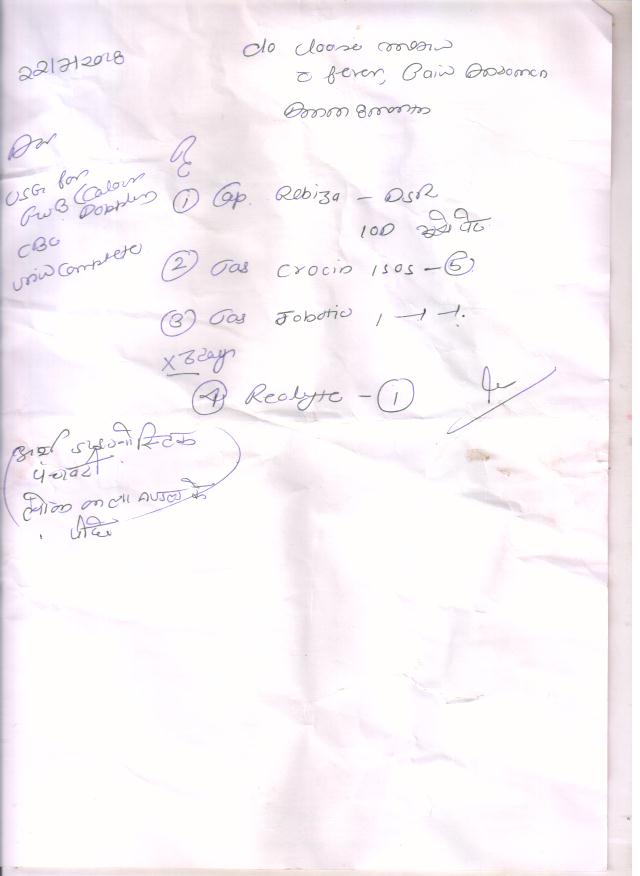 22/7/2018
c/o loose motion
c fever, Pain Abdomen
Adv
USG for
FWB (Colour
Doppler)
CBC
Urine Complete
R
① Cap. Rebiza - DSR
10D खाली पेट
② Tab Crocin 1 SOS - ⑤
③ Tab Fobotic 1 —1 —1.
X 3 days
④ Reolyte - ①
डाइग्नोस्टिक
पंचवटी
लोक कला मण्डल के
पीछे